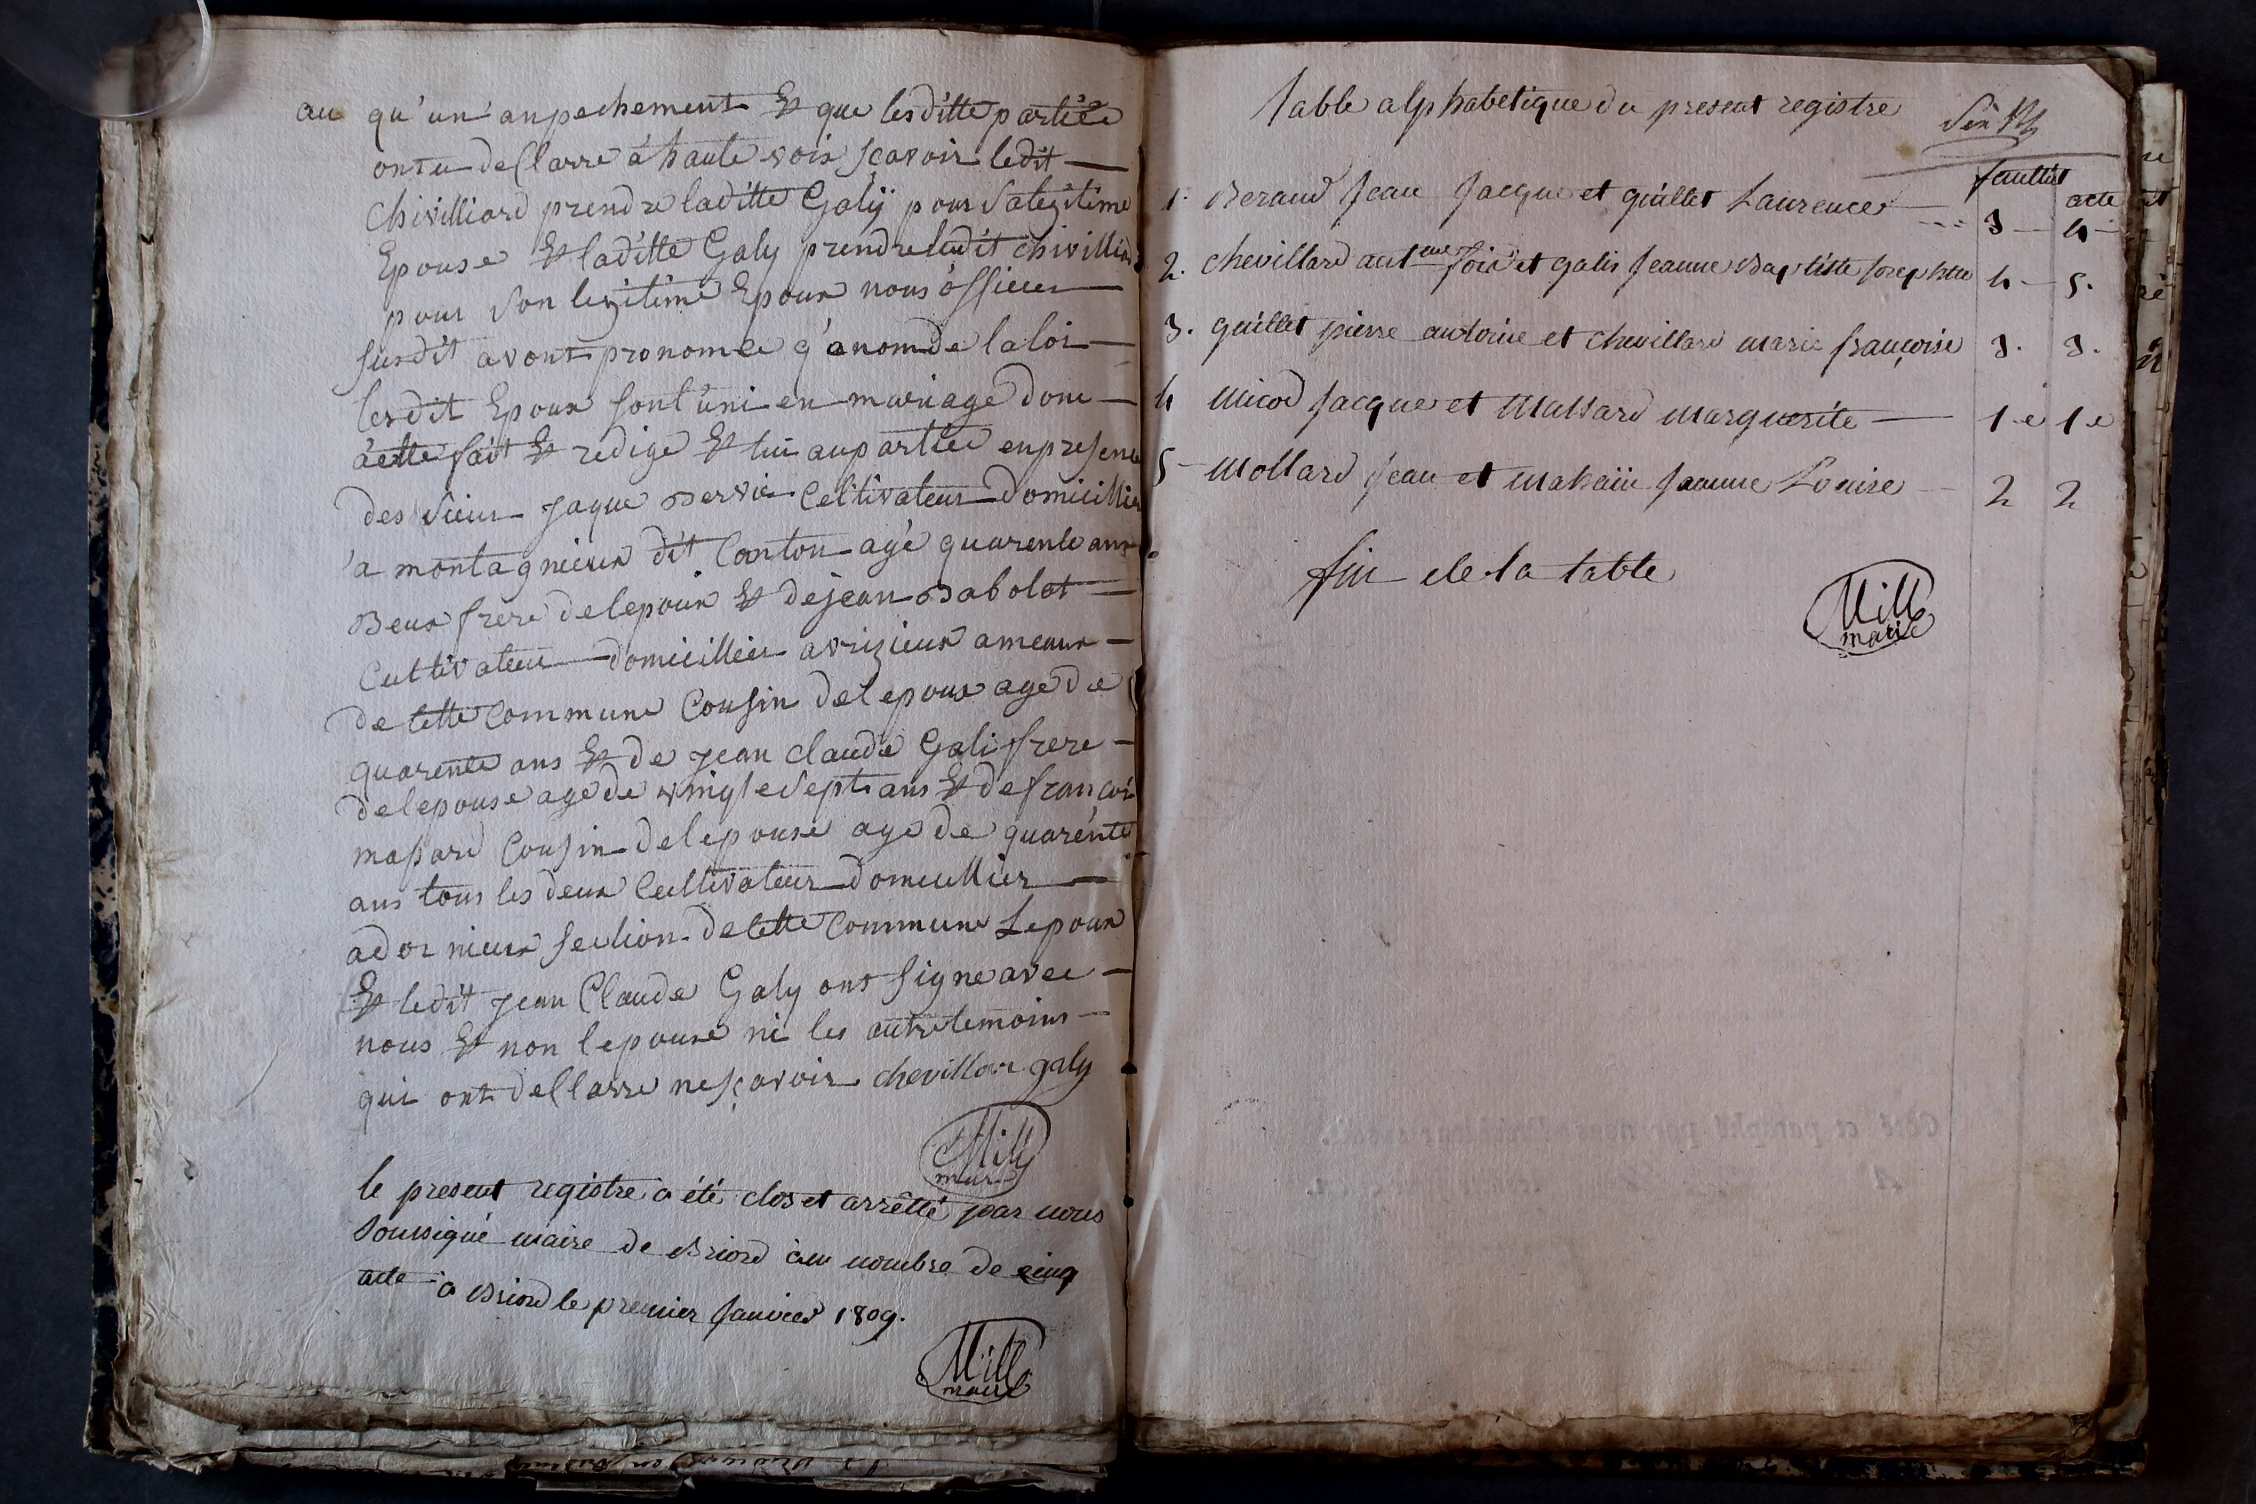 au qu'un anpechement & que les ditte partiée
ont u declarre a haute voix sçavoir ledit
chivilliard prendre laditte Galÿ pour sa legitime
Epouse & laditte Galy prendre ledit chivilliard
pour son legitime Epoux nous officier
susdit avont prononcee q'a nom de la loi
lesdit Epoux sont uni en mariage donc
acette fait & redigé & lui au partiee en presence
des sieur jaque Bervie Celtivateur domicillier
a montagnieux dit Conton agé quarente ans
Beux frere de lepoux & de jean Babolat
Cultivateur domicillier a vrizieux ameaux
de cette commune Cousin de lepoux age de
quarente ans & de jean claude Gali frere
de lepouse age de vingtesept ans & de françoi
masard Cousin de lepouse age de quarénte
ans tous les deux Celtivateur domicillier
a dornieux section de cette commune Lepoux
& ledit jean Claude Galy ont signe avec
nous & non lepouse ni les autre temoins
qui ont dellarre ne sçavoir chevillon galy
Mill
maire
le present registre a été clos et arrêtté par nous
soussigné maire de Briord au nombre de cinq
acte a Briord le premier janvier 1809.
Mill
maire
table alphabetique du present registre
feuillet
acte
1. Beraud jean jacque et guillet Laurence 3 4
2. chevillard antne foix et galis jeanne Baptiste josephte 4 5.
3. guillet pierre antoine et chevillard marie françoise 3. 3.
4 Micod jacque et Massard marguerite 1.e 1.e
5 Mollard jean et jeanne Louise 2 2
fin de la table
Mill
maire